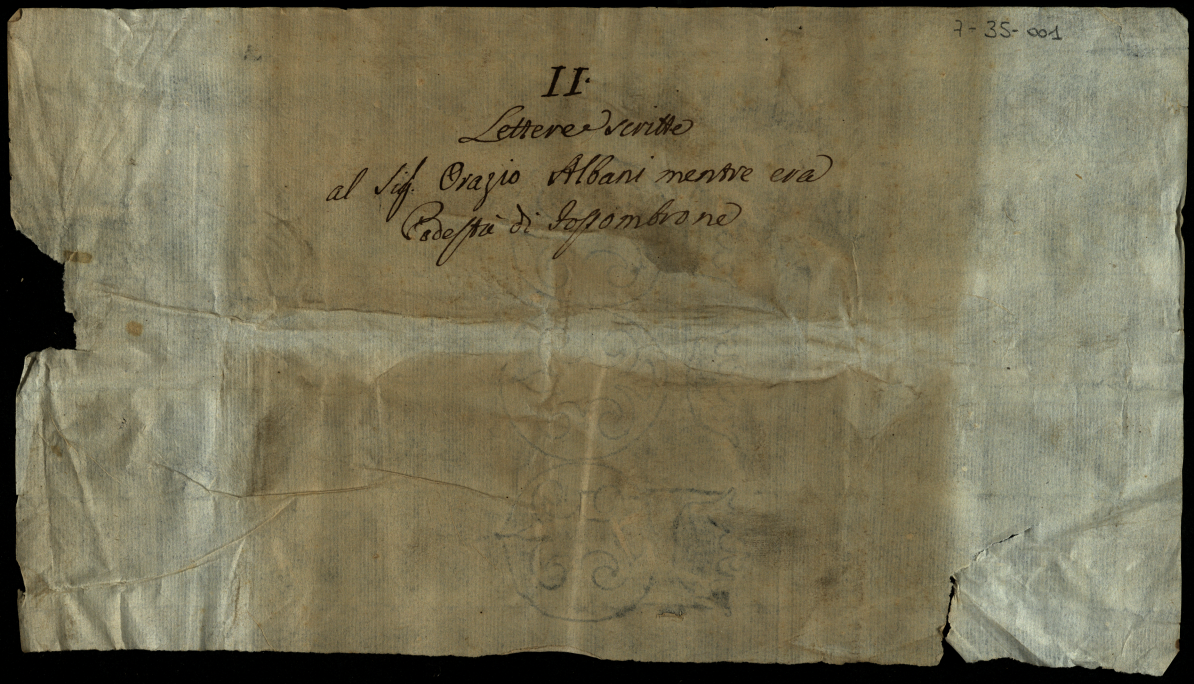 7-35-001
II.
Lettere scritte
al Sig. Orazio Albani mentre era
Podestà di Fossombrone